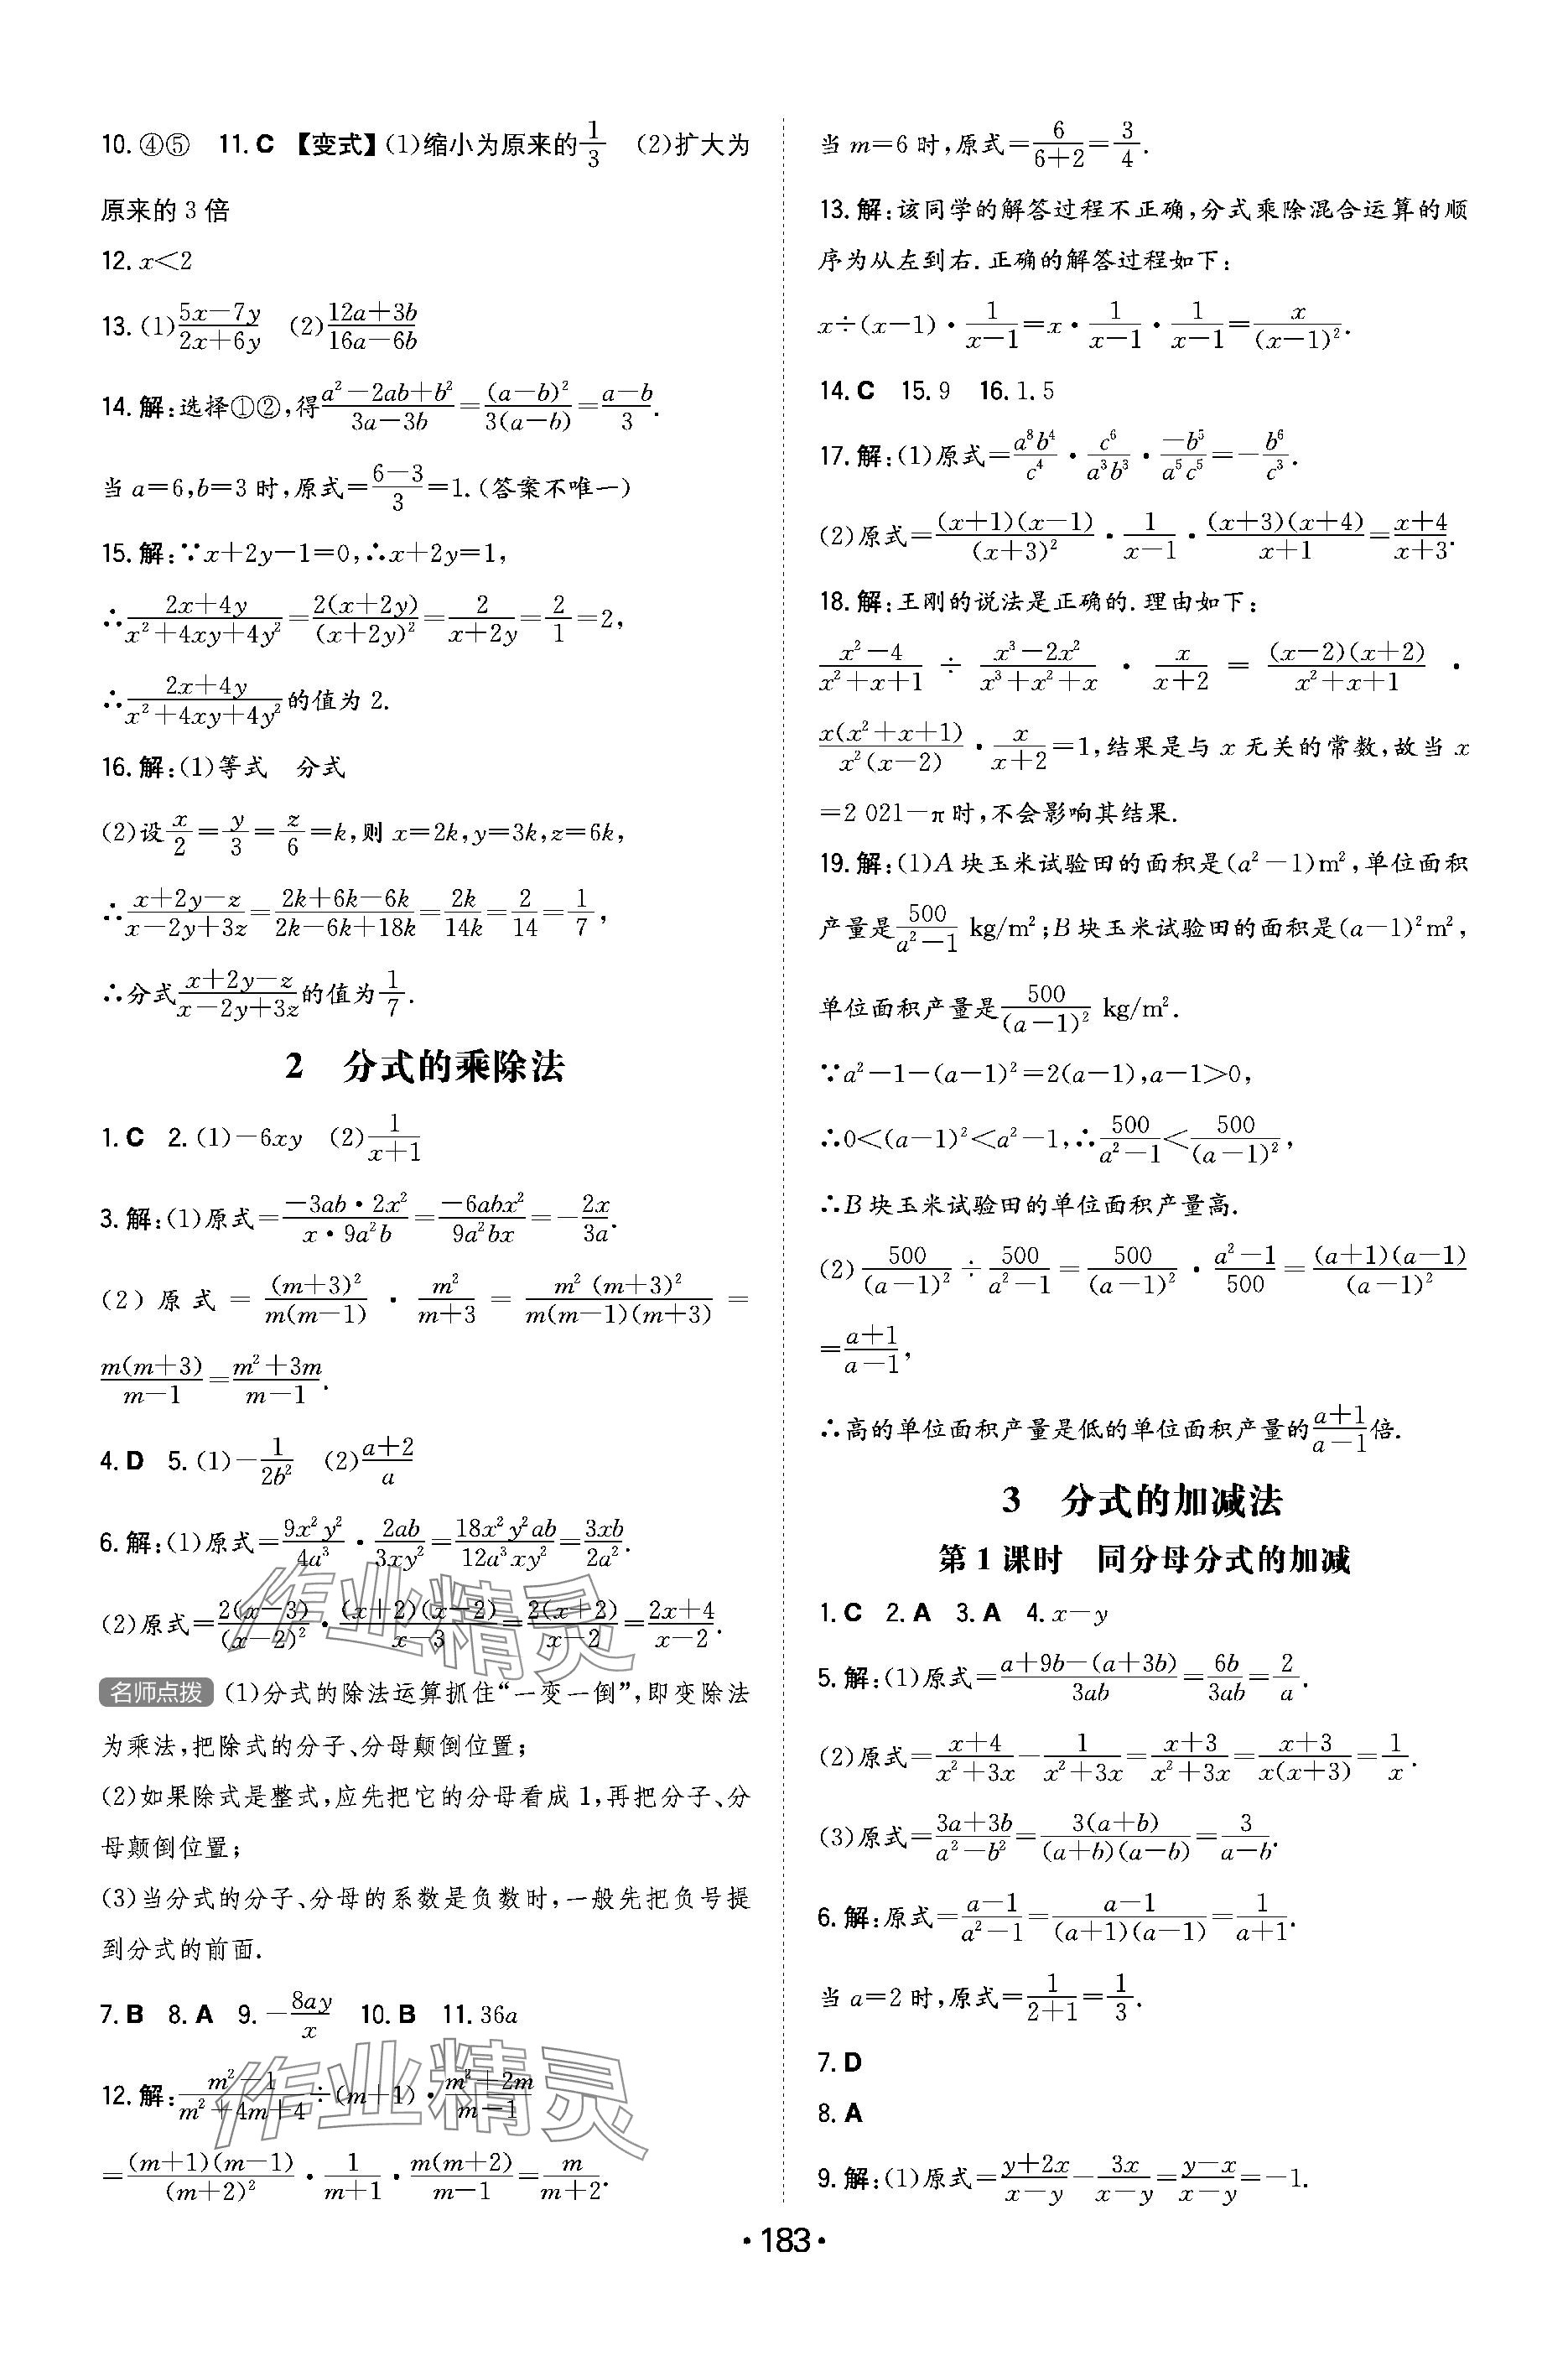 10. ④⑤ 11. C 【变式】(1)缩小为原来的1/3 (2)扩大为
原来的 3 倍
12. x<2
13. (1)(5x-7y)/(2x+6y) (2)(12a+3b)/(16a-6b)
14. 解:选择①②,得(a²-2ab+b²)/(3a-3b)=(a-b)²/3(a-b)=(a-b)/3.
当 a=6,b=3 时,原式=(6-3)/3=1.(答案不唯一)
15. 解:∵x+2y-1=0,∴x+2y=1,
∴(2x+4y)/(x²+4xy+4y²)=2(x+2y)/(x+2y)²=2/(x+2y)=2/1=2,
∴(2x+4y)/(x²+4xy+4y²)的值为 2.
16. 解:(1)等式 分式
(2)设x/2=y/3=z/6=k,则 x=2k,y=3k,z=6k,
∴(x+2y-z)/(x-2y+3z)=(2k+6k-6k)/(2k-6k+18k)=2k/14k=2/14=1/7,
∴分式(x+2y-z)/(x-2y+3z)的值为1/7.
2 分式的乘除法
1. C 2. (1)-6xy (2)1/(x+1)
3. 解:(1)原式=(-3ab·2x²)/(x·9a²b)=(-6abx²)/(9a²bx)=-2x/3a.
(2)原式=(m+3)²/m(m-1)·m²/(m+3)=m²(m+3)²/m(m-1)(m+3)=
m(m+3)/(m-1)=(m²+3m)/(m-1).
4. D 5. (1)-1/2b² (2)(a+2)/a
6. 解:(1)原式=9x²y²/4a³·2ab/3xy²=18x²y²ab/12a³xy²=3xb/2a².
(2)原式=2(x-3)/(x-2)²·(x+2)(x-2)/(x-3)=2(x+2)/(x-2)=(2x+4)/(x-2).
名师点拨 (1)分式的除法运算抓住“一变一倒”,即变除法
为乘法,把除式的分子、分母颠倒位置;
(2)如果除式是整式,应先把它的分母看成 1,再把分子、分
母颠倒位置;
(3)当分式的分子、分母的系数是负数时,一般先把负号提
到分式的前面.
7. B 8. A 9. -8ay/x 10. B 11. 36a
12. 解:(m²-1)/(m²+4m+4)÷(m+1)·(m²+2m)/(m-1)
=(m+1)(m-1)/(m+2)²·1/(m+1)·m(m+2)/(m-1)=m/(m+2).
当 m=6 时,原式=6/(6+2)=3/4.
13. 解:该同学的解答过程不正确,分式乘除混合运算的顺
序为从左到右.正确的解答过程如下:
x÷(x-1)·1/(x-1)=x·1/(x-1)·1/(x-1)=x/(x-1)².
14. C 15. 9 16. 1.5
17. 解:(1)原式=a⁸b⁴/c⁴·c⁶/a³b³·-b⁵/a⁵c⁵=-b⁶/c³.
(2)原式=(x+1)(x-1)/(x+3)²·1/(x-1)·(x+3)(x+4)/(x+1)=(x+4)/(x+3).
18. 解:王刚的说法是正确的.理由如下:
(x²-4)/(x²+x+1)÷(x³-2x²)/(x³+x²+x)·x/(x+2)=(x-2)(x+2)/(x²+x+1)·
x(x²+x+1)/x²(x-2)·x/(x+2)=1,结果是与 x 无关的常数,故当 x
=2 021-π时,不会影响其结果.
19. 解:(1)A 块玉米试验田的面积是(a²-1)m²,单位面积
产量是500/(a²-1) kg/m²;B 块玉米试验田的面积是(a-1)²m²,
单位面积产量是500/(a-1)² kg/m².
∵a²-1-(a-1)²=2(a-1),a-1>0,
∴0<(a-1)²<a²-1,∴500/(a²-1)<500/(a-1)²,
∴B 块玉米试验田的单位面积产量高.
(2)500/(a-1)²÷500/(a²-1)=500/(a-1)²·(a²-1)/500=(a+1)(a-1)/(a-1)²
=(a+1)/(a-1),
∴高的单位面积产量是低的单位面积产量的(a+1)/(a-1)倍.
3 分式的加减法
第 1 课时 同分母分式的加减
1. C 2. A 3. A 4. x-y
5. 解:(1)原式=(a+9b-(a+3b))/3ab=6b/3ab=2/a.
(2)原式=(x+4)/(x²+3x)-1/(x²+3x)=(x+3)/(x²+3x)=(x+3)/x(x+3)=1/x.
(3)原式=(3a+3b)/(a²-b²)=3(a+b)/(a+b)(a-b)=3/(a-b).
6. 解:原式=(a-1)/(a²-1)=(a-1)/(a+1)(a-1)=1/(a+1).
当 a=2 时,原式=1/(2+1)=1/3.
7. D
8. A
9. 解:(1)原式=(y+2x)/(x-y)-3x/(x-y)=(y-x)/(x-y)=-1.
·183·
作业精灵
作业精灵